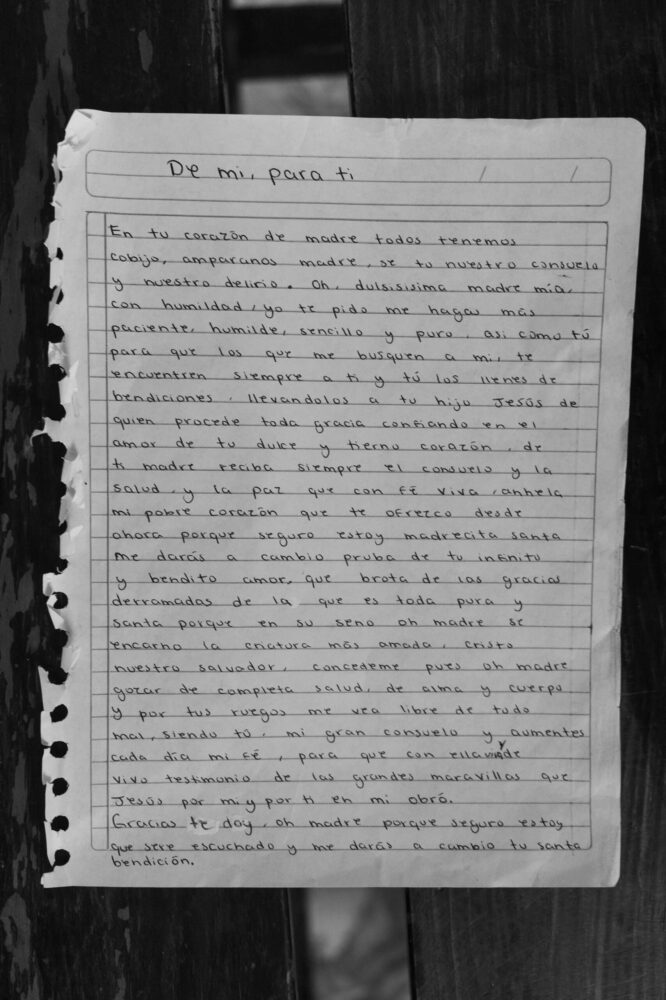 De mi, para ti / /
En tu corazón de madre todos tenemos
cobijo, amparanos madre, se tu nuestro consuelo
y nuestro delirio. Oh, dulsisisima madre mía,
con humildad, yo te pido me hagas más
paciente, humilde, sencillo y puro, asi como tú
para que los que me busquen a mi, te
encuentren siempre a ti y tú los llenes de
bendiciones, llevandolos a tu hijo Jesús de
quien procede toda gracia confiando en el
amor de tu dulce y tierno corazón, de
ti madre reciba siempre el consuelo y la
salud, y la paz que con fé viva, anhela
mi pobre corazón que te ofrezco desde
ahora porque seguro estoy madrecita santa
me darás a cambio pruba de tu infinito
y bendito amor, que brota de las gracias
derramadas de la que es toda pura y
santa porque en su seno oh madre se
encarno la criatura más amada, cristo
nuestro salvador, concedeme pues oh madre
gozar de completa salud, de alma y cuerpo
y por tus ruegos me vea libre de todo
mal, siendo tú, mi gran consuelo y aumentes
cada día mi fé, para que con ella y de
vivo testimonio de las grandes maravillas que
Jesús por mi y por ti en mi obró.
Gracias te doy, oh madre porque seguro estoy
que sere escuchado y me darás a cambio tu santa
bendición.